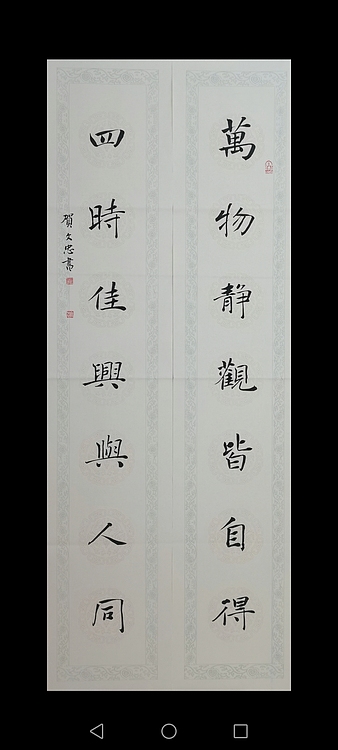 萬物静觀皆自得
四時佳興與人同
賀文忠書